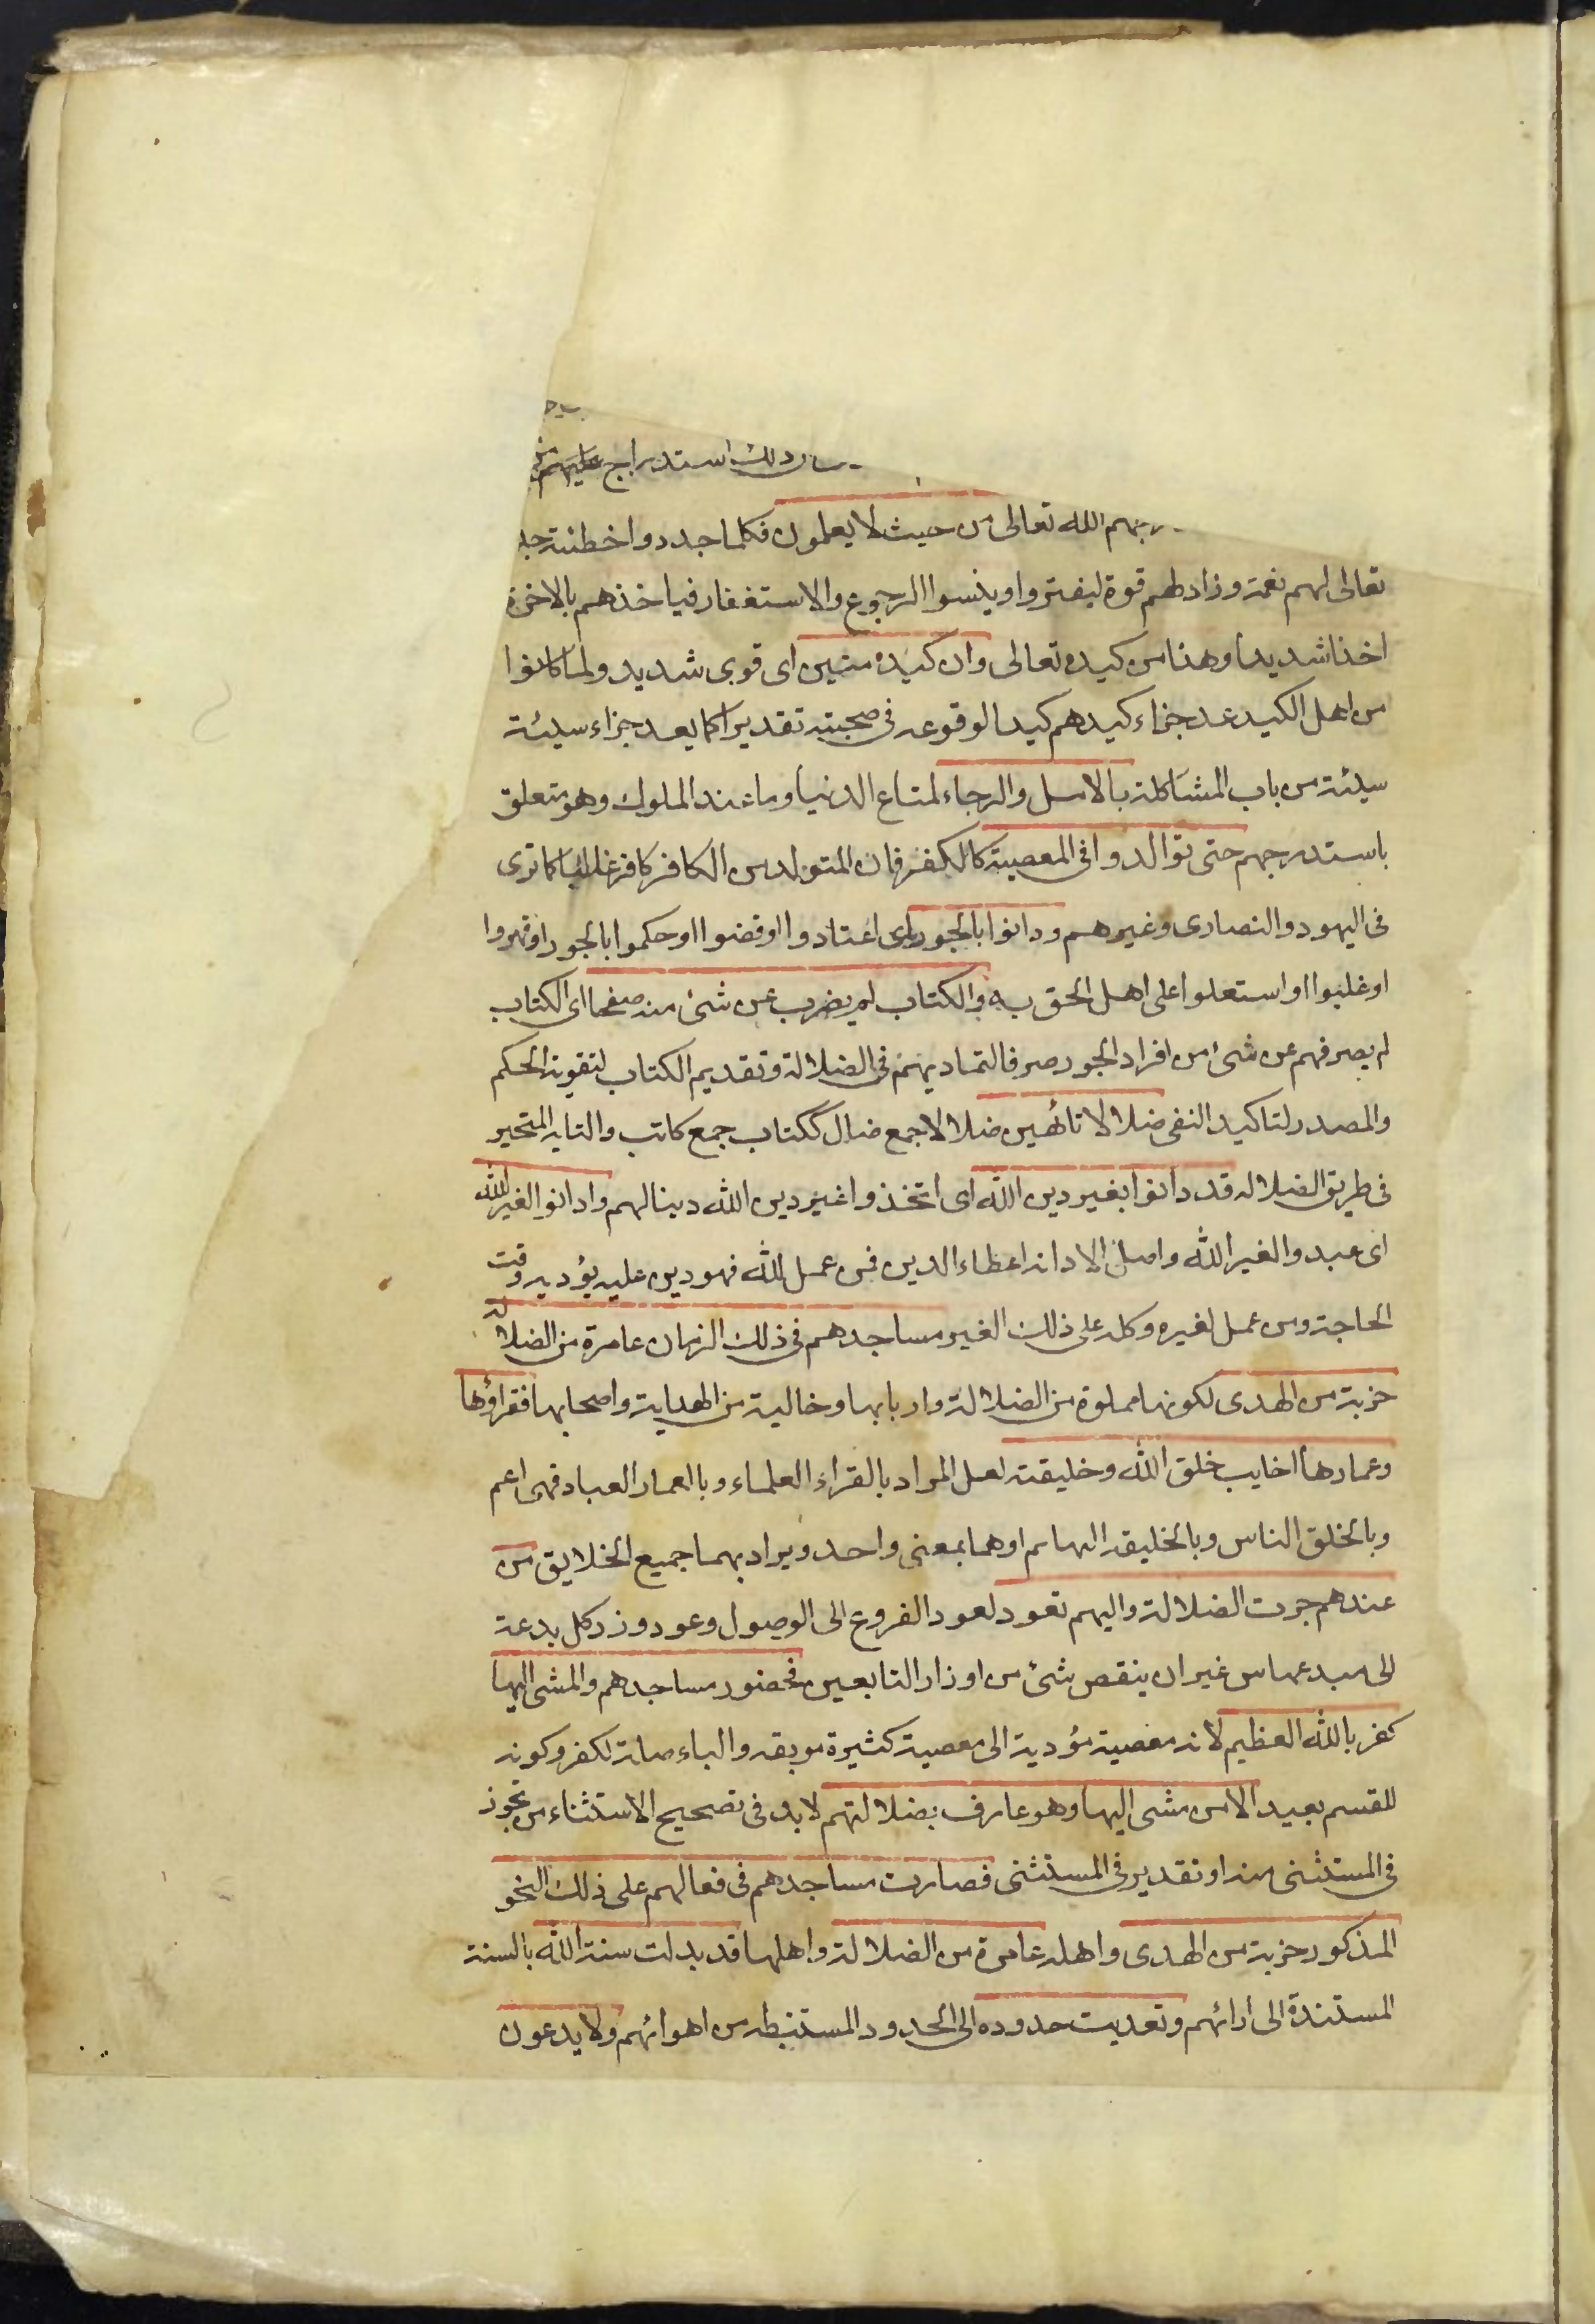 ذلك استدراج عليهم
الله تعالى من حيث لا يعلمون فكلما جددوا خطيئة جد
تعالى لهم نعمة وزاد لهم قوة ليغتروا وينسوا الرجوع والاستغفار فياخذهم بالاخرة
اخذا شديدا وهذا من كيده تعالى وان كيده متين اى قوى شديد ولما كانوا
من اهل الكيد عد جزاء كيدهم كيدا لوقوعه فى صحبته تقديرا كما يعد جزاء سيئة
سيئة من باب المشاكلة بالامل والرجاء لمتاع الدنيا وما عند الملوك وهو متعلق
باستدرجهم حتى توالدوا فى المعصية كالكفر فان المتولد من الكافر كافر غالبا كما ترى
فى اليهود والنصارى وغيرهم ودانوا بالجور اى اعتادوا او قضوا او حكموا بالجور او قهروا
او غلبوا او استعلوا على اهل الحق به والكتاب لم يضرب عن شئ منه صفحا اى الكتاب
لم يصرفهم عن شئ من افراد الجور صرفا لتماديهم فى الضلالة وتقديم الكتاب لتقوية الحكم
والمصدر لتاكيد النفى ضلالا تائهين ضلالا جمع ضال ككتاب جمع كاتب والتايه المتحير
فى طريق الضلاله قد دانوا بغير دين الله اى اتخذوا غير دين الله دينا لهم وادانوا لغير الله
اى عبدوا لغير الله واصل الادانه اعطاء الدين فمن عمل لله فهو دين عليه يؤديه وقت
الحاجة ومن عمل لغيره وكله على ذلك الغير مساجدهم فى ذلك الزمان عامرة من الضلالة
خربة من الهدى لكونها مملوة من الضلالة واربابها وخالية من الهداية واصحابها فقراؤها
وعمارها اخايب خلق الله وخليقته لعل المراد بالقراء العلماء وبالعمار العباد فهى اعم
وبالخلق الناس وبالخليقه البهايم او هما بمعنى واحد ويراد بهما جميع الخلايق من
عندهم جرت الضلالة واليهم تعود لعود الفروع الى الوصول وعود وزر كل بدعة
الى مبدعها من غير ان ينقص شئ من اوزار التابعين فحضور مساجدهم والمشى اليها
كفر بالله العظيم لانه معصية مؤدية الى معصية كثيرة موبقه والباء صلة لكفر وكونه
للقسم بعيد الا من مشى اليها وهو عارف بضلالتهم لابد فى تصحيح الاستثناء من تجوز
فى المستثنى منه او تقدير فى المستثنى فصارت مساجدهم فى فعالهم على ذلك النحو
المذكور خربة من الهدى واهله عامرة من الضلالة واهلها قد بدلت سنة الله بالسنة
المستندة الى ارائهم وتعديت حدوده الى الحدود المستنبطه من اهوائهم ولا يدعون